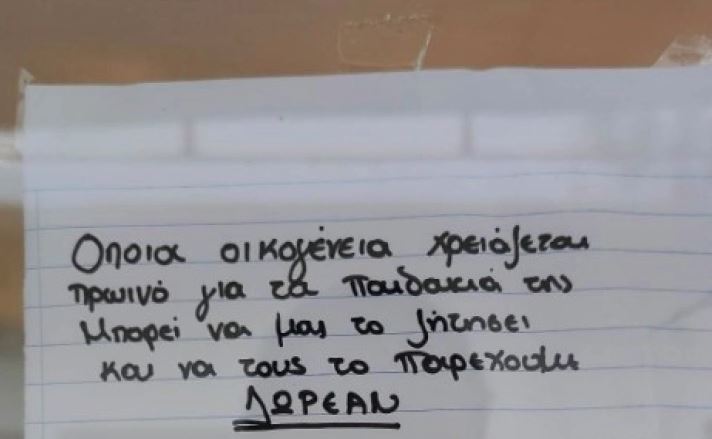 Οποια οικογένεια χρειάζεται
πρωινό για τα παιδακιά της
Μπορεί να μας το ζήτησει
και να τους το παρεχουμε
ΔΩΡΕΑΝ